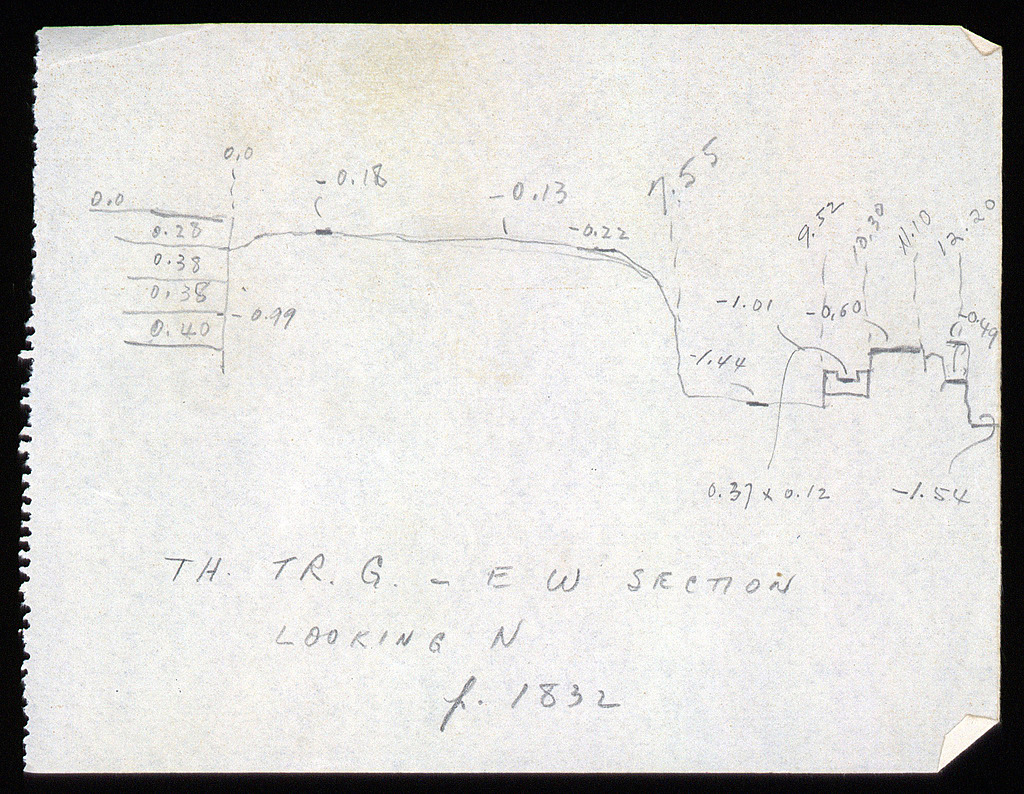 0.0
-0.18
-0.13
7.55
0.0
0.28
-0.22
9.52
10.30
11.10
12.20
0.38
0.38
-0.99
-1.01
-0.60
-0.49
0.40
-1.44
0.37 x 0.12
-1.54
TH. TR. G. - E W SECTION
LOOKING N
p. 1832